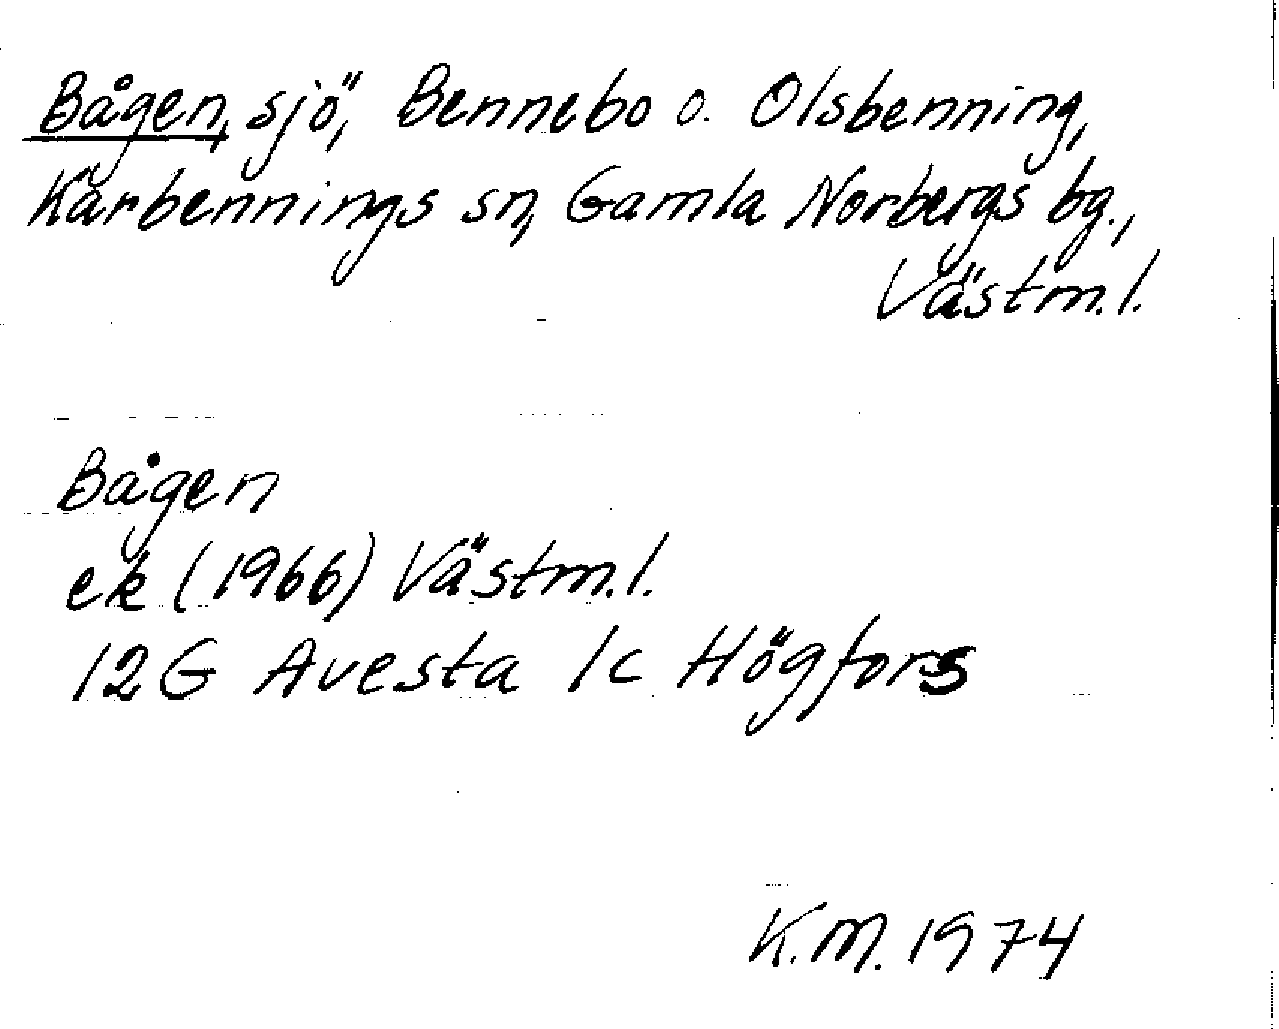 Bågen, sjö, Bennebo o. Olsbenning,
Kärbennings sn, Gamla Norbergs bg.,
Västm.l.
Bågen
ek (1966) Västm.l.
12G Avesta 1c Högfors
K.M. 1974